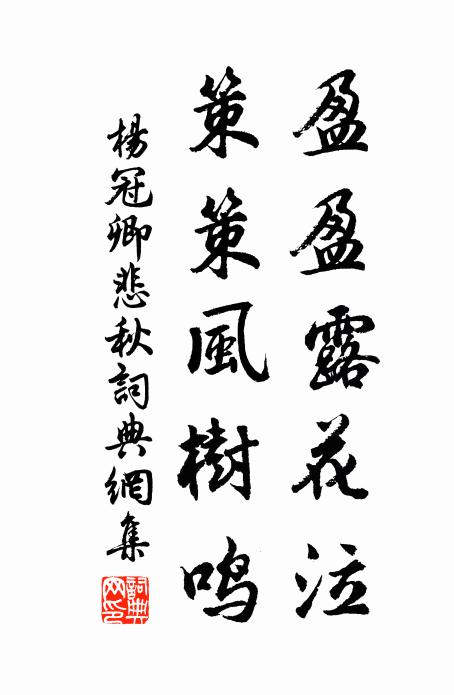 盈盈露花泣
策策風樹鳴
楊冠卿悲秋詞典網集
詞典网印